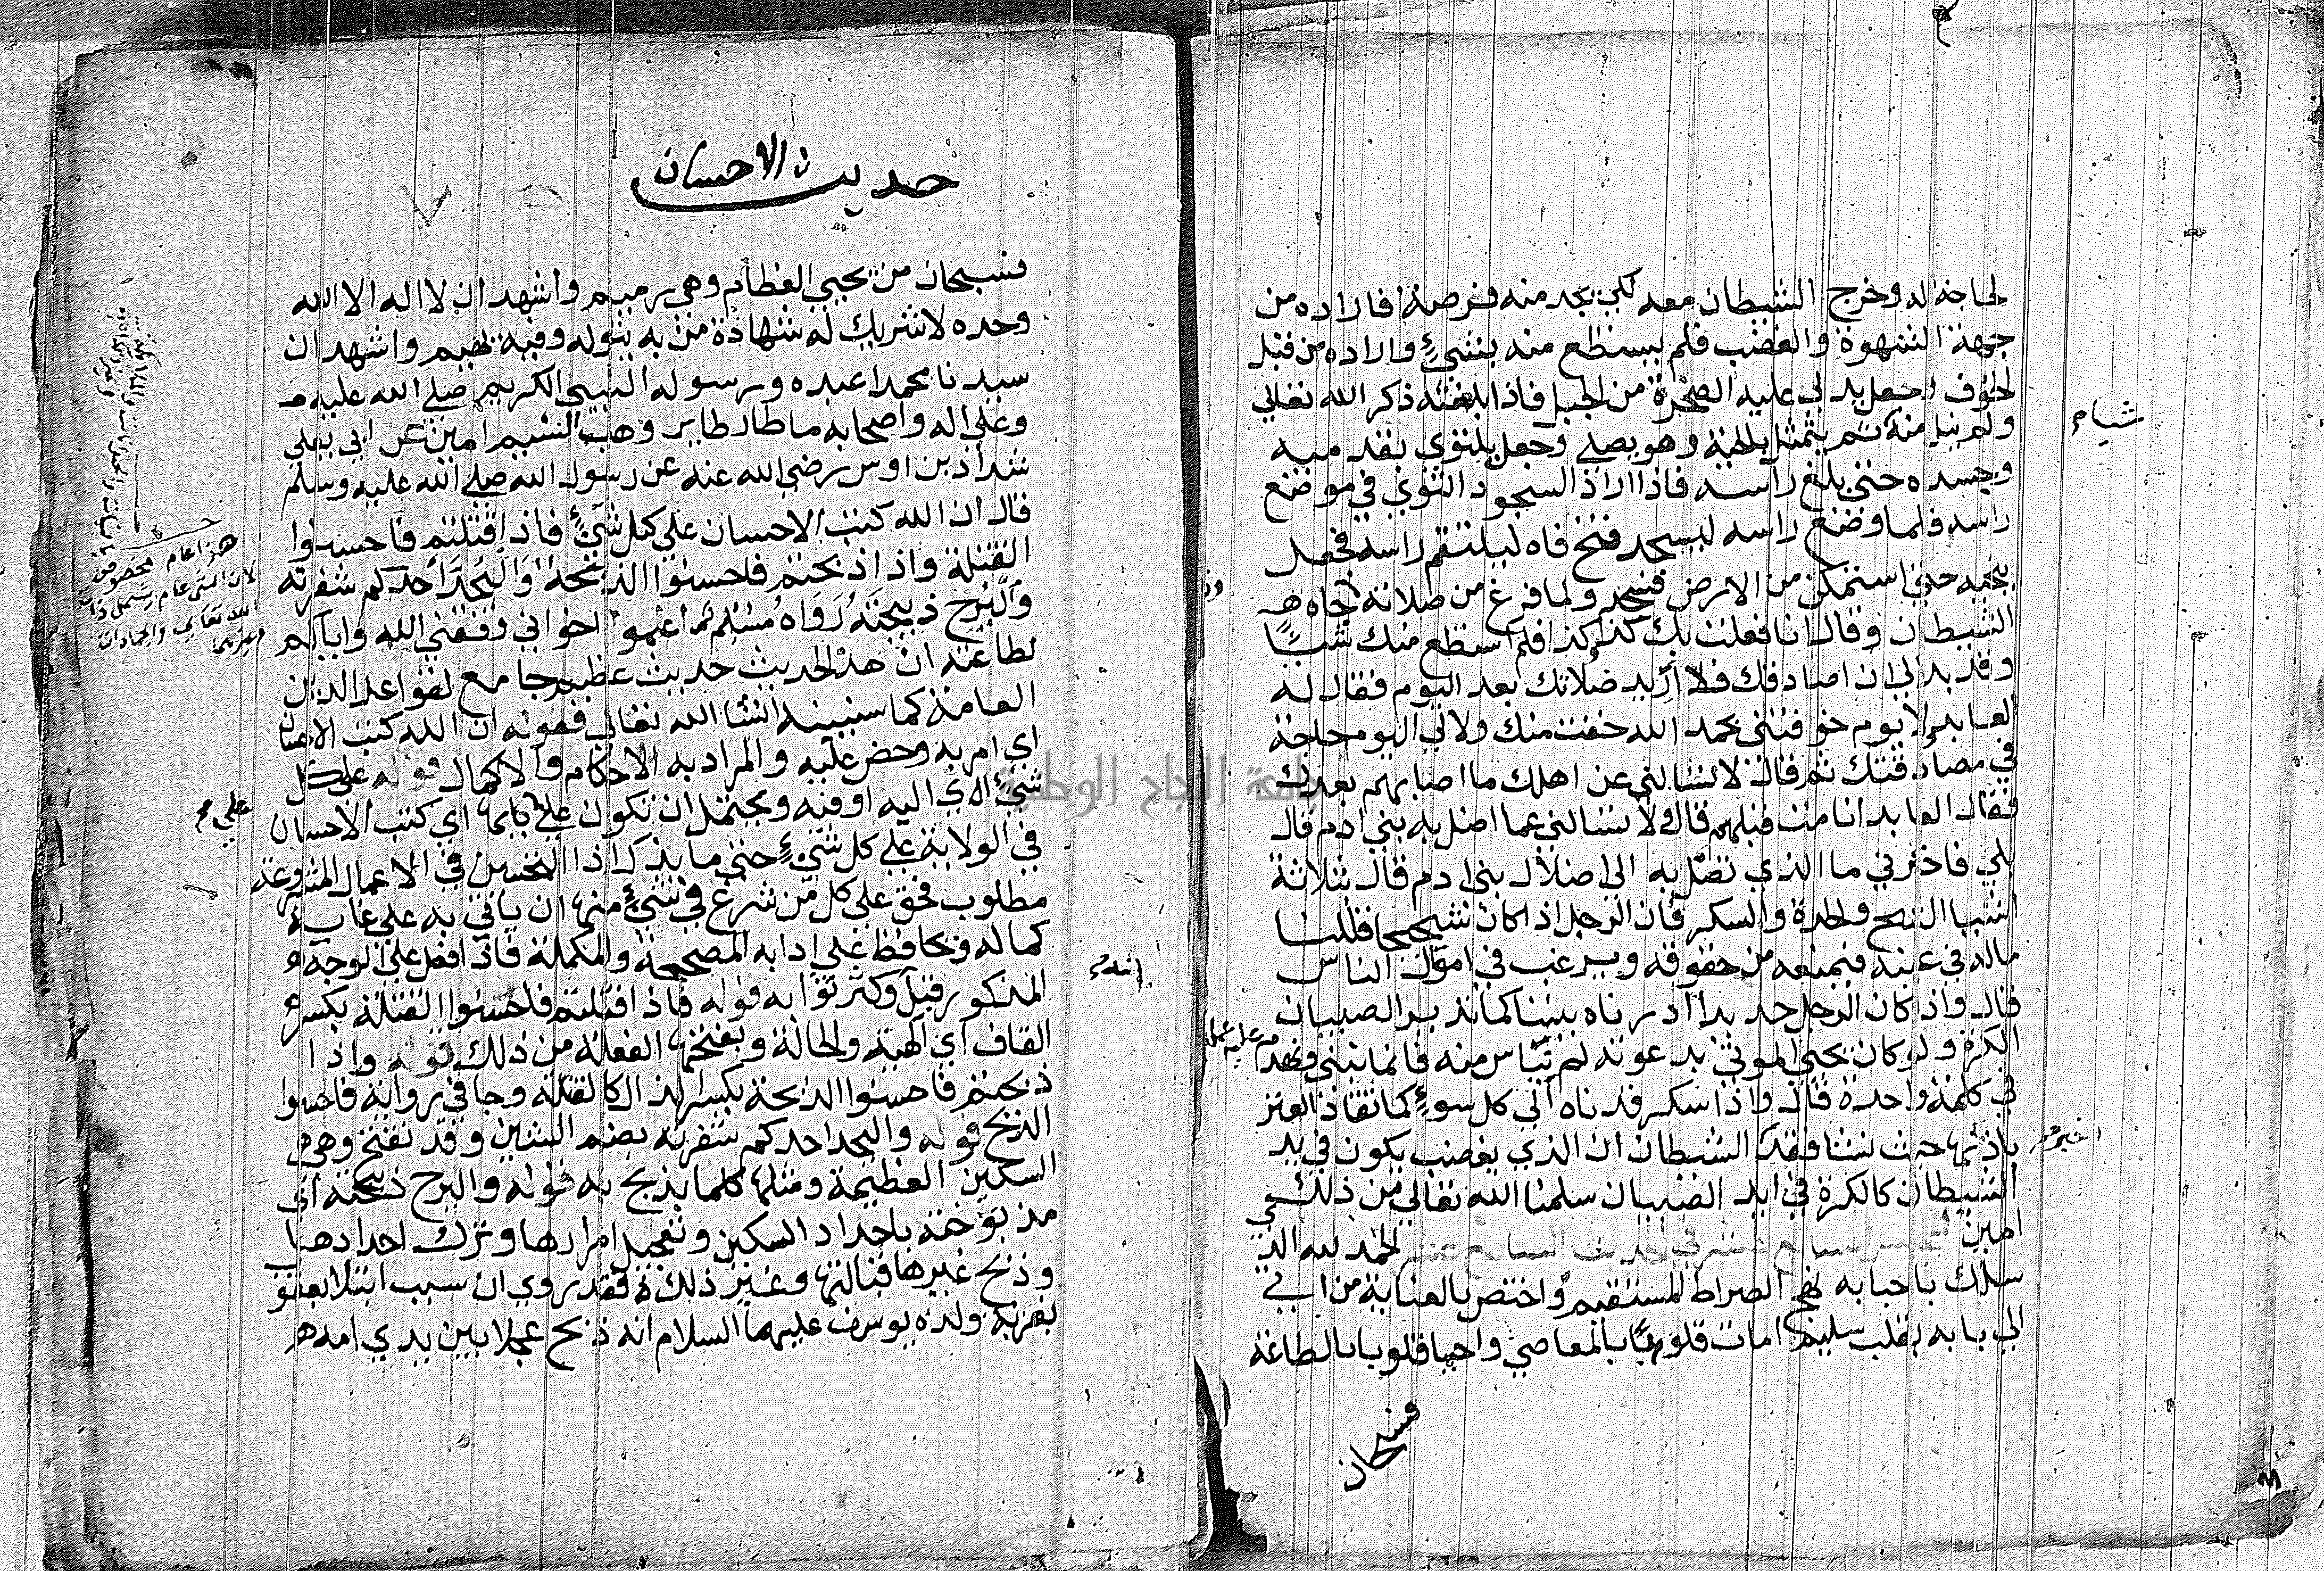 لحاجة له وخرج الشيطان معه لكي يجد منه فرصة فاراده من
جهة الشهوة والغضب فلم يستطع منه بشيءٍ واراده من قبل
الخوف وجعل يدلي عليه الصخرة من الجبل فاذا بلغته ذكر الله تعالي
ولم ينل منه ثم تمثل بالحية وهو يصلي وجعل يلتوي بقدميه
وجسده حتي بلغ راسه فاذا اراد السجود التوي في موضع
راسه فلما وضع راسه ليسجد فتح فاه ليلتقم راسه فجعل
ينحيه حتي استمكن من الارض فسجد ولما فرغ من صلاته جاه
الشيطان وقال انا فعلت بك كذا وكذا فلم استطع منك شيا
وقد بدا لي ان اصادقك فلا اريد ضلاتك بعد اليوم فقال له
العابد لا يوم خوفتني بحمد الله خفت منك ولا لي اليوم حاجة
في مصادقتك ثم قال لا تسالني عن اهلك ما اصابهم بعدك
فقال العابد انا مت قبلهم قال ولا تسالني عما اضل به بني ادم قال
بلي فاخبرني ما الذي تضل به الي اضلال بني ادم قال بثلاثة
اشيا الشح والحدة والسكر فان الرجل اذا كان شحيحا قللنا
ماله في عينه فنمنعه من حقوقه ويرغب في اموال الناس
قال واذا كان الرجل حديدا ادرناه بيننا كما تدير الصبيان
الكرة ولو كان يحيي الموتي بدعوته لم نيأس منه فانما نبني ونهدم
في كلمة واحدة قال واذا سكر قدناه الي كل سوءٍ كما تقاد العنز
باذنها حيث نشا فقال الشيطان ان الذي يغضب يكون في يد
الشيطان كالكرة في ايد الصبيان سلمنا الله تعالي من ذلك
امين المجلس السابع عشر في الحديث السابع عشر الحمد لله الذي
سلك باحبابه نهج الصراط المستقيم واختص بالعناية من اتي
الي بابه بقلب سليم امات قلوبًا بالمعاصي واحيا قلوبا بالطاعة
فسبحان
شياه
حديث الاحسان
فسبحان من يحيي العظام وهي رميم واشهد ان لا اله الا الله
وحده لا شريك له شهادة من به بتوله وفيه يهيم واشهد ان
سيدنا محمدا عبده ورسوله النبي الكريم صلي الله عليه
وعلي اله واصحابه ما طار طاير وهب النسيم امين عن ابي يعلي
شداد بن اوس رضي الله عنه عن رسول الله صلي الله عليه وسلم
قال ان الله كتب الاحسان علي كل شيءٍ فاذا قتلتم فاحسنوا
القتلة واذا ذبحتم فاحسنوا الذبحة وَالْيُحِدَّ احدكم شفرته
وَالْيُرِح ذبيحتَهُ رَوَاه مُسْلِم اعلموا اخواني وفقني الله واياكم
لطاعته ان هذا الحديث حديث عظيم جامع لقواعد الدين
العامة كما سنبينه انشا الله تعالي فقوله ان الله كتب الاحسان
اي امر به وحض عليه والمراد به الاحكام والاكمال قوله علي كل
شيءٍ اي اليه او فيه ويحتمل ان تكون علي بابها اي كتب الاحسان
في الولاية علي كل شيءٍ حتي ما يذكر اذا التحسين في الاعمال المشروعة
مطلوب فحق علي كل من شرع في شيءٍ منها ان ياتي به علي غاية
كماله ويحافظ علي ادابه المصححة والمكملة فاذا فعل علي الوجه
المذكور قبل وكثر ثوابه قوله فاذا قتلتم فاحسنوا القتلة بكسر
القاف اي الهيئة والحالة وبفتحها الفعلة من ذلك قوله واذا
ذبحتم فاحسنوا الذبحة بكسر الذال كالقتلة وجا في رواية فاحسنوا
الذبح قوله واليحد احدكم شفرته بضم الشين وقد تفتح وهي
السكين العظيمة ومثلها كلما يذبح به قوله واليرح ذبيحته اي
مذبوحته باحداد السكين وتعجيل امرارها وترك احدادها
وذبح غيرها قبالتها وغير ذلك فقد روي ان سبب ابتلا يعقوب
بفرقة ولده يوسف عليهما السلام انه ذبح عجلا بين يدي امه
هذا عام مخصوص